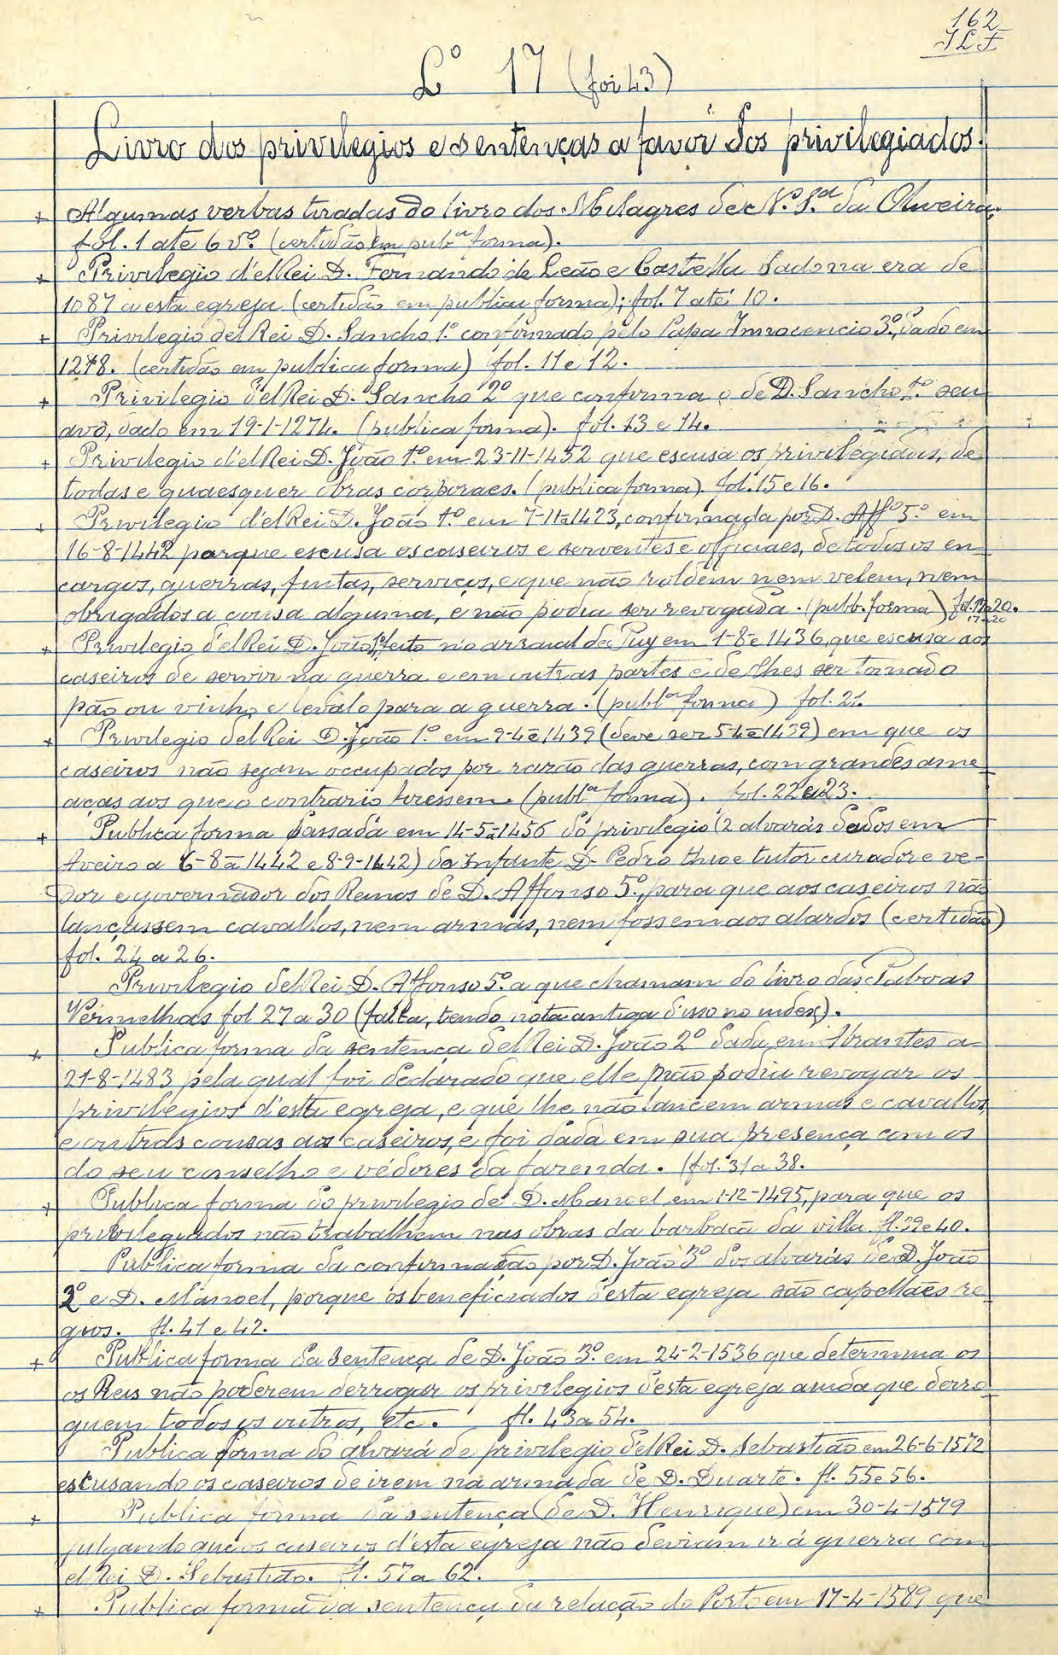 162
L.º 17 (foi 43)
Livro dos privilegios e sentenças a favor dos privilegiados.
+ Algumas verbas tiradas do livro dos Milagres de N.ª S.ra da Oliveira,
fol. 1 até 6 vº. (certidão em pub.ca forma).
+ Privilegio d'el Rei D. Fernando de Leão e Castella dado na era de
1087 a esta egreja (certidão em publica forma); fol. 7 até 10.
+ Privilegio del Rei D. Sancho 1.º confirmado pelo Papa Innocencio 3.º, dado em
1248. (certidão em publica forma) fol. 11 e 12.
+ Privilegio d'el Rei D. Sancho 2º que confirma o de D. Sancho 1.º seu
avô, dado em 19-1-1274. (publica forma). fol. 13 e 14.
+ Privilegio d'el Rei D. João 1.º em 23-11-1452 que escusa os privilegiados, de
todas e quaesquer obras corporaes. (publica forma) fol. 15 e 16.
+ Privilegio d'el Rei D. João 1.º em 7-11-1423, confirmada por D. Affº 5.º em
16-8-1442 parque escusa os caseiros e serventes e officiaes, de todos os en-
cargos, guerras, fintas, serviços, e que não roldem nem velem, nem
obrigados a cousa alguma, e não podia ser revogada. (publ. forma) fol. 17 a 20.
17 a 20
+ Privilegio d'el Rei D. João 1º, feito no arraial de Tuy em 1-8-1436, que escusa aos
caseiros de servir na guerra e em outras partes e de lhes ser tomado
pão ou vinho, e leval-o para a guerra. (publ.ca forma) fol. 21.
+ Privilegio del Rei D. João 1.º em 9-4-1439 (deve ser 5-4-1439) em que os
caseiros não sejam occupados por razão das guerras, com grandes ame-
aças aos que o contrario fizessem. (publ.ca forma). fol. 22 a 23.
+ Publica forma passada em 14-5-1456 do privilegio (2 alvarás dados em
Aveiro a 6-8-1442 e 8-9-1442) do Infante D. Pedro thio e tutor curador e ve-
dor e governador dos Reinos de D. Affonso 5.º, para que aos caseiros não
lançassem cavallos, nem armas, nem fossem aos alardos (certidão)
fol. 24 a 26.
Privilegio del Rei D. Affonso 5.º a que chamam do livro das Taboas
Vermelhas fol 27 a 30 (falta, tendo nota antiga d'isso no index).
+ Publica forma da sentença del Rei D. João 2º dada em Abrantes a
21-8-1483 pela qual foi declarado que elle não podia revogar os
privilegios d'esta egreja, e que lhe não lancem armas e cavallos,
e outras cousas aos caseiros, e foi dada em sua presença com os
do seu conselho e védores da fazenda. (fol. 31 a 38.
+ Publica forma do privilegio de D. Manoel em 1-12-1495, para que os
privilegiados não trabalhem nas obras da barbacã da villa fl. 39 e 40.
Publica forma da confirmação por D. João 3º dos alvarás de D. João
2º e D. Manoel, porque os beneficiados d'esta egreja são capellães re-
gios. fl. 41 e 42.
+ Publica forma da sentença de D. João 3.º em 24-2-1536 que determina os
os Reis não poderem derrogar os privilegios d'esta egreja ainda que derro-
guem todos os outros, etc. fl. 43 a 54.
Publica forma do alvará de privilegio del Rei D. Sebastião em 26-6-1572
escusando os caseiros de irem na armada de D. Duarte. fl. 55 e 56.
+ Publica forma da sentença (de D. Henrique) em 30-4-1579
julgando que os caseiros d'esta egreja não deviam ir á guerra com
el Rei D. Sebastião. fl. 57 a 62.
+ Publica forma da sentença da relação do Porto em 17-4-1589 que